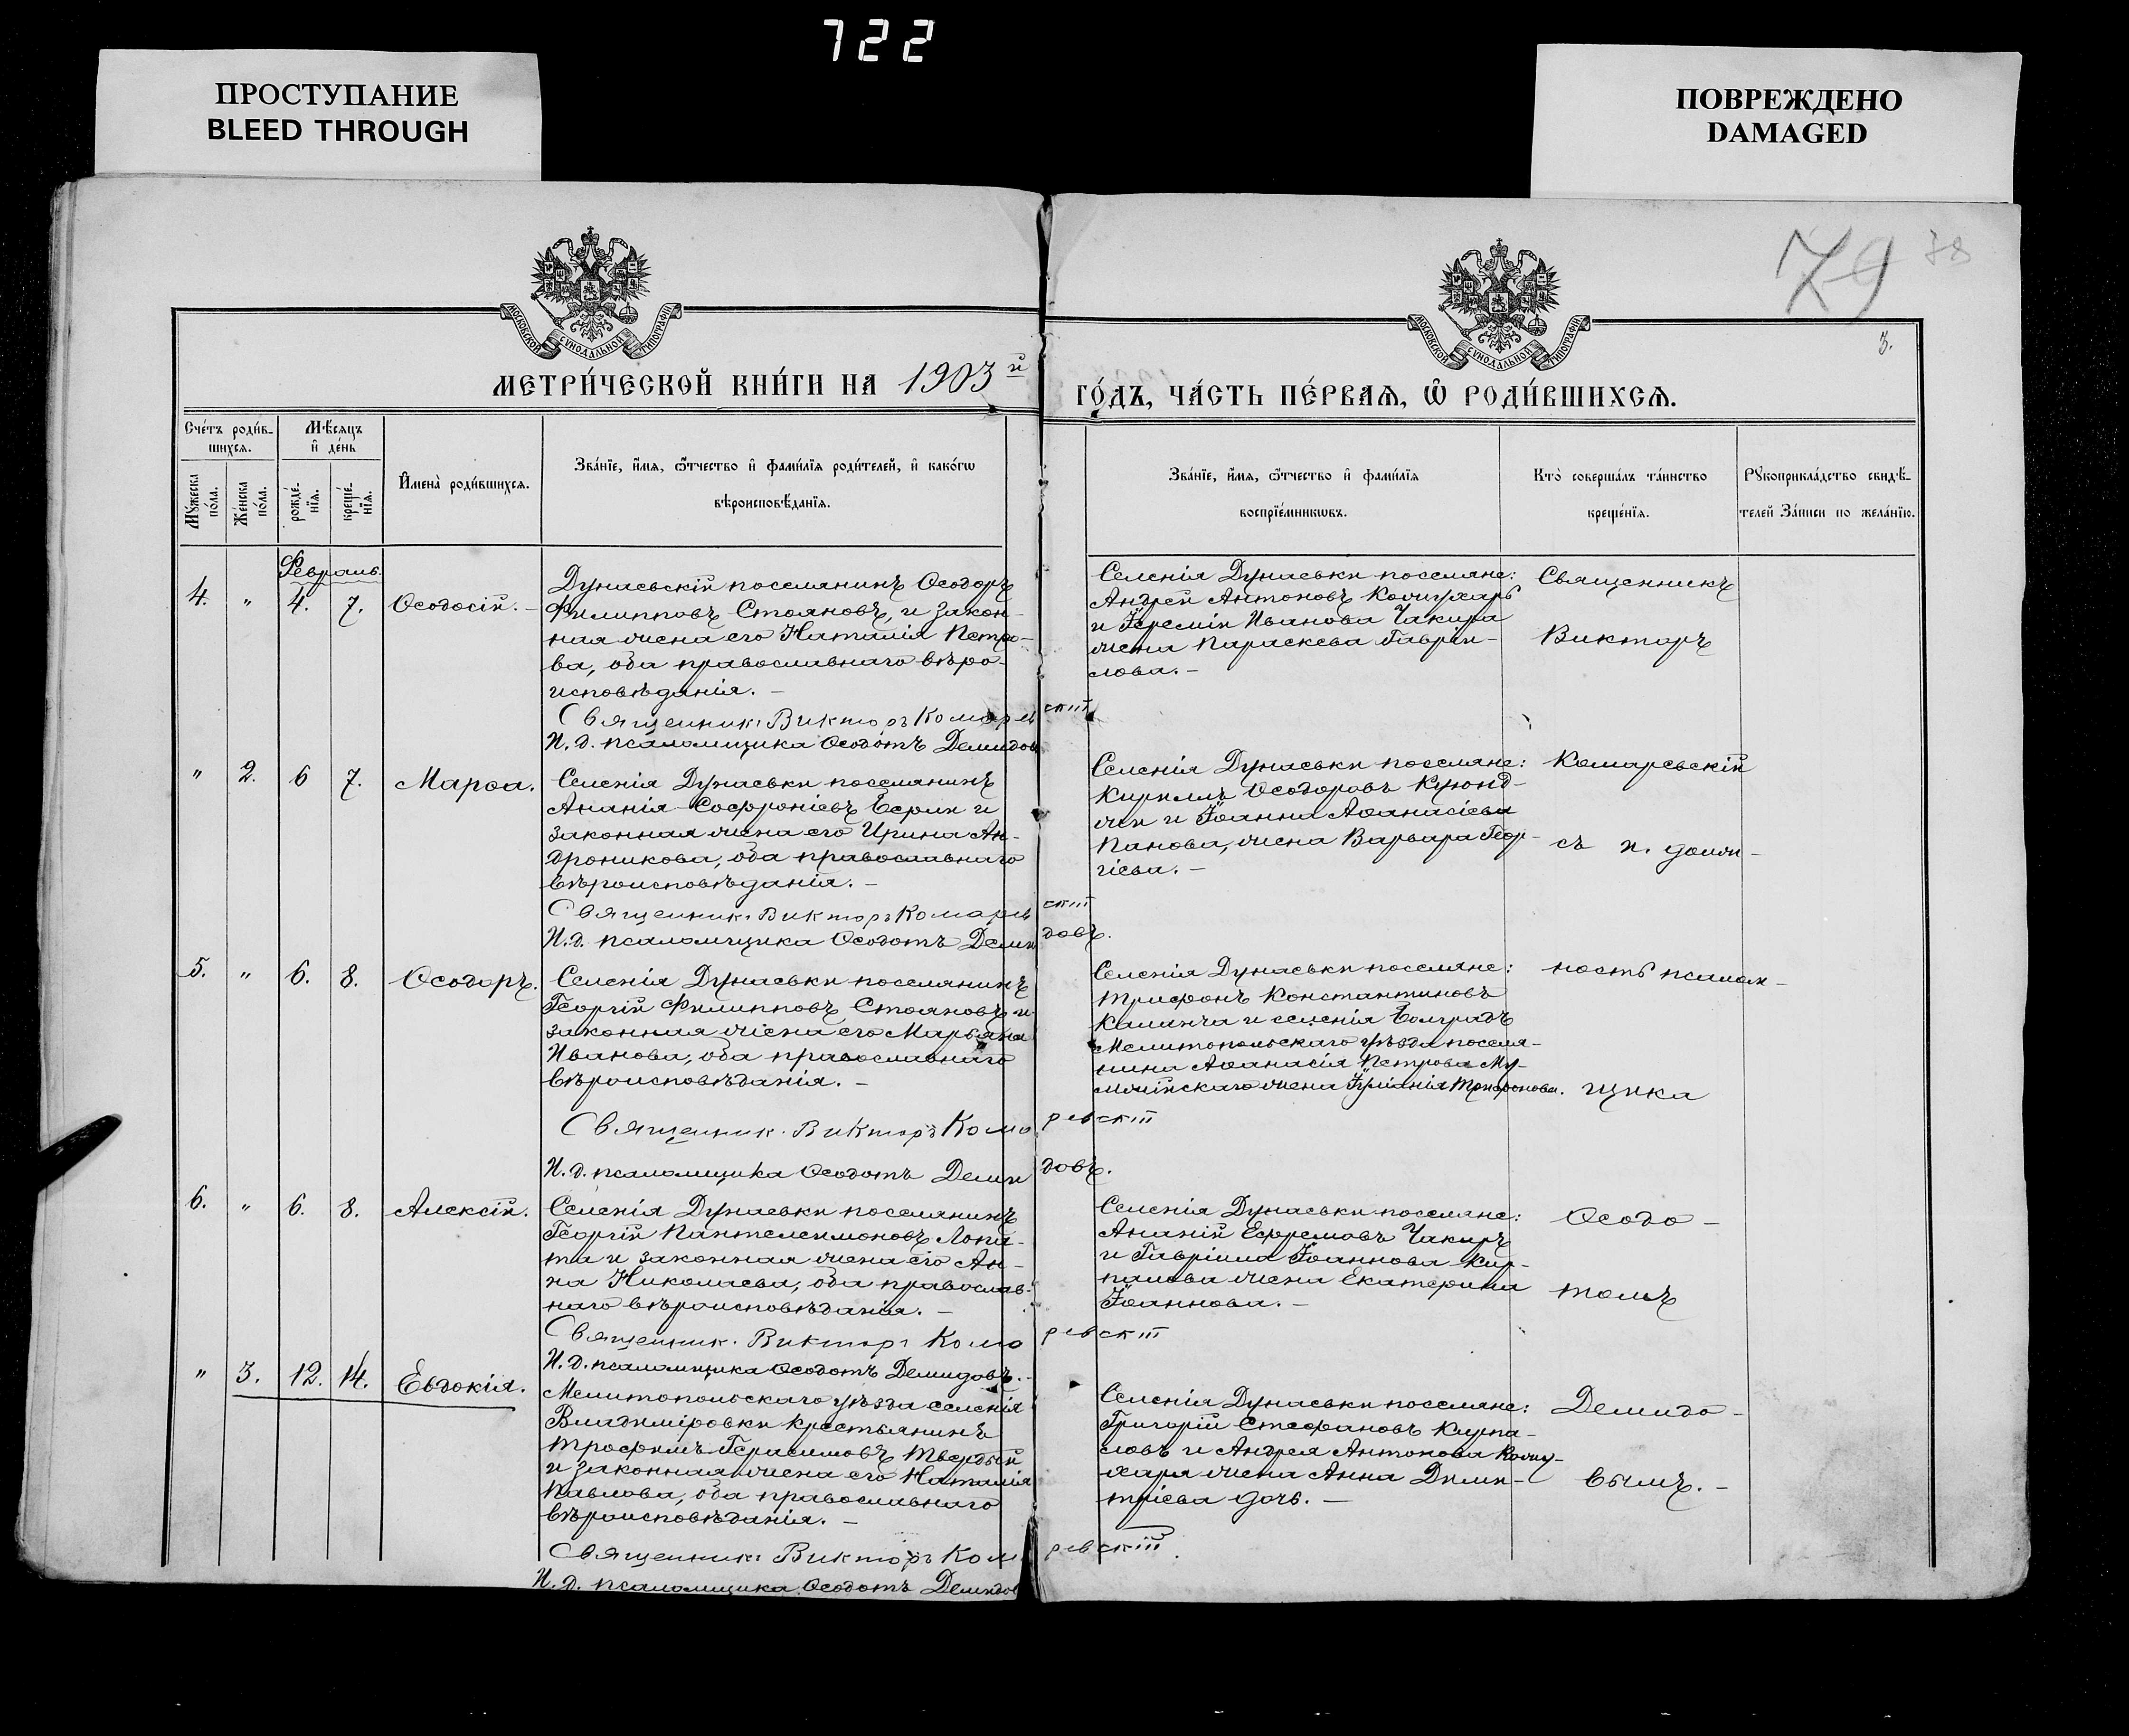 722
ПРОСТУПАНИЕ
BLEED THROUGH
ПОВРЕЖДЕНО
DAMAGED
79 78
3.
МОСКОВСКОЙ СѴНОДАЛЬНОЙ ТИПОГРАФІИ
МОСКОВСКОЙ СѴНОДАЛЬНОЙ ТИПОГРАФІИ
МЕТРИ́ЧЕСКОЙ КНИ́ГИ НА 1903й
ГО́ДЪ, ЧА́СТЬ ПЕ́РВАѦ, Ѽ РОДИ́ВШИХСѦ.
Сче́тъ роди́в-
шихсѧ.
Мѣ́сѧцъ
и҆ де́нь
Мꙋ́жеска
по́ла.
Же́нска
по́ла.
рожде́-
нїѧ.
креще́-
нїѧ.
И҆мена̀ роди́вшихсѧ.
Зва́нїе, и҆́мѧ, ѻ҆́тчество и҆ фами́лїѧ роди́телей, и҆ како́гѡ
вѣроисповѣ́данїѧ.
Зва́нїе, и҆́мѧ, ѻ҆́тчество и҆ фами́лїѧ
воспрїе́мникѡвъ.
Кто̀ соверша́лъ та́инство
креще́нїѧ.
Рꙋкоприкла́дство свидѣ́-
телей За́писи по жела́нїю.
Февраль.
4. " 4. 7. Ѳеодосій. –
Дунаевскій поселянинъ Ѳеодоръ
Филипповъ Стояновъ, и закон-
ная жена его Наталія Петро-
ва, оба православнаго вѣро-
исповѣданія. –
Священникъ Викторъ Комаревскій
И. д. псаломщика Ѳеодотъ Демидов
Селенія Дунаевки поселяне:
Андрей Антоновъ Кочухарь
и Іереміи Иванова Чакира
жена Параскева Гаврі-
лова. –
Священникъ
Викторъ
" 2. 6 7. Марѳа.
Селенія Дунаевки поселянинъ
Ананія Софроніевъ Еери и
законная жена его Ирина Ан-
дроникова, оба православнаго
вѣроисповѣданія. –
Священникъ Викторъ Комаревскій
И. д. псаломщика Ѳеодотъ Демидовъ.
Селенія Дунаевки поселяне:
Кириллъ Ѳеодоровъ Куюнд-
жи и Іоанна Аѳанасіева
Панова, жена Варвара Геор-
гіева. –
Комаревскій
съ и. долж-
5. " 6. 8. Ѳеодоръ.
Селенія Дунаевки поселянинъ
Георгій Филипповъ Стояновъ и
законная жена его Марьяна
Иванова, оба православнаго
вѣроисповѣданія. –
Священникъ Викторъ Комаревскій
И. д. псаломщика Ѳеодотъ Демидовъ.
Селенія Дунаевки поселяне:
Трифонъ Константиновъ
Калинча и селенія Болградъ
Мелитопольскаго уѣзда поселя-
нина Аѳанасія Петрова
жена Трифонова.
ность псалом-
щика
6. " 6. 8. Алексій.
Селенія Дунаевки поселянинъ
Георгій Пантелеимоновъ Лопа-
та и законная жена его Ан-
на Николаева, оба православ-
наго вѣроисповѣданія. –
Священник. Викторъ Комаревскій
И. д. псаломщика Ѳеодотъ Демидовъ. –
Селенія Дунаевки поселяне:
Ананій Ефремовъ Чакиръ
и Гавріила Іоаннова Кир-
панова жена Екатерина
Іоаннова. –
Ѳеодо-
томъ
" 3. 12. 14. Евдокія.
Мелитопольскаго уѣзда селенія
Владиміровки крестьянинъ
Трофимъ Герасимовъ Твердый
и законная жена его Наталія
Павлова, оба православнаго
вѣроисповѣданія. –
Священникъ Викторъ Комаревскій.
И. д. псаломщика Ѳеодотъ Демидов
Селенія Дунаевки поселяне:
Григорій Стефановъ Кирпа-
ловъ и Андрея Антонова Кочу-
харя жена Анна Дими-
тріева дочь. –
Демидо-
вымъ. –